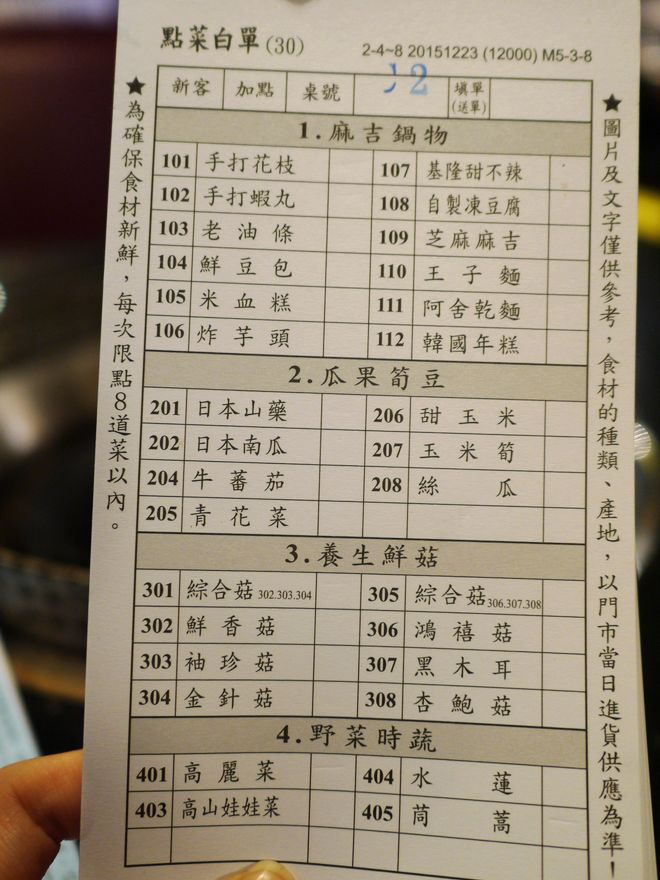 點菜白單(30)
2-4~8 20151223 (12000) M5-3-8
新客 加點 桌號 12 填單(送單)
★為確保食材新鮮，每次限點8道菜以內。
1.麻吉鍋物
101 手打花枝 107 基隆甜不辣
102 手打蝦丸 108 自製凍豆腐
103 老油條 109 芝麻麻吉
104 鮮豆包 110 王子麵
105 米血糕 111 阿舍乾麵
106 炸芋頭 112 韓國年糕
2.瓜果筍豆
201 日本山藥 206 甜玉米
202 日本南瓜 207 玉米筍
204 牛蕃茄 208 絲瓜
205 青花菜
3.養生鮮菇
301 綜合菇302.303.304 305 綜合菇306.307.308
302 鮮香菇 306 鴻禧菇
303 袖珍菇 307 黑木耳
304 金針菇 308 杏鮑菇
4.野菜時蔬
401 高麗菜 404 水蓮
403 高山娃娃菜 405 茼蒿
★圖片及文字僅供參考，食材的種類、產地，以門市當日進貨供應為準！